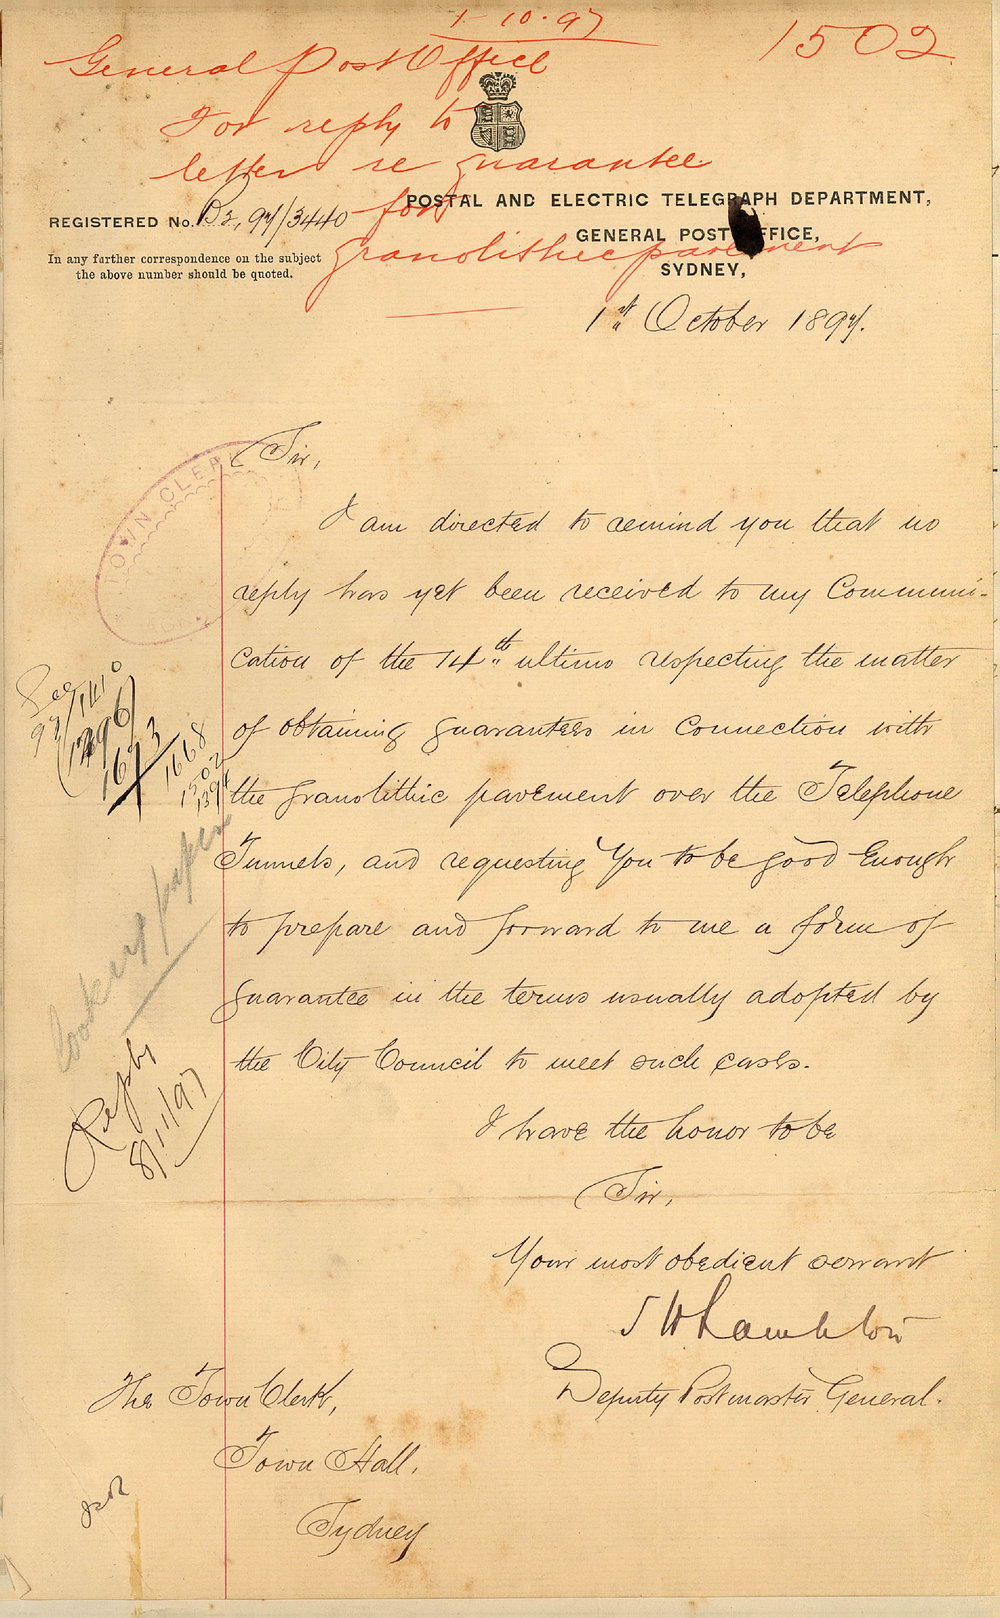 1-10-97
1502
General Post Office
For reply to
letter re guarantee
for
granolithic pavement
POSTAL AND ELECTRIC TELEGRAPH DEPARTMENT,
GENERAL POST OFFICE,
SYDNEY,
REGISTERED No. B2, 97/3440
In any farther correspondence on the subject
the above number should be quoted.
1st October 1897.
TOWN CLERK
Sir,
I am directed to remind you that no
reply has yet been received to my Communi-
cation of the 14th ultimo respecting the matter
of obtaining guarantees in connection with
the granolithic pavement over the Telephone
Tunnels, and requesting You to be good Enough
to prepare and forward to me a form of
guarantee in the terms usually adopted by
the City Council to meet such cases.
I have the honor to be
Sir,
Your most obedient servant
S H Lambton
Deputy Postmaster General.
The Town Clerk,
Town Hall,
Sydney
1668
1502
Reply
8/11/97